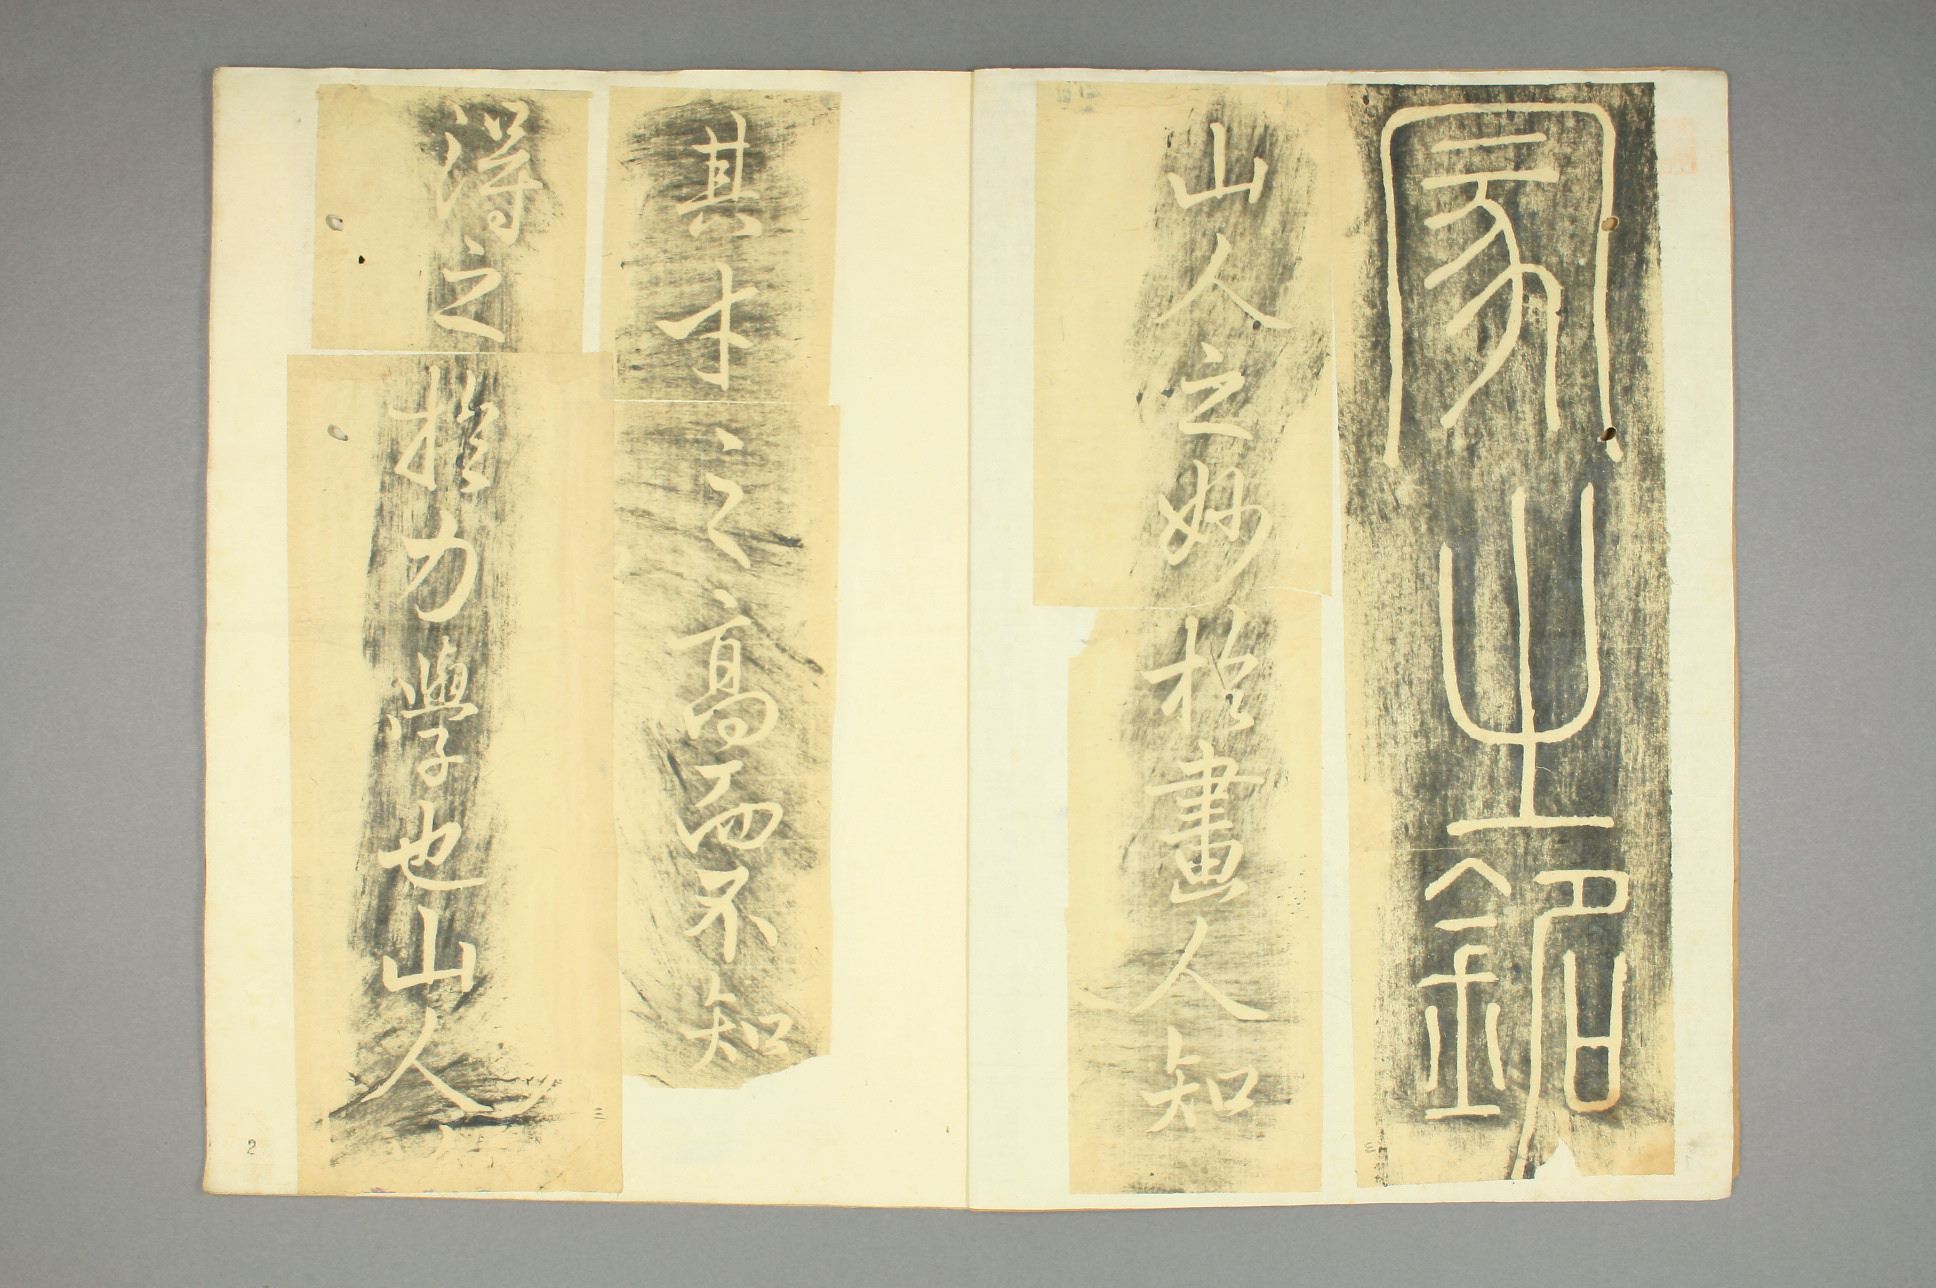 冢之銘
山人之妙於畫人知
其才之高而不知
得之於力學也山人
三
三
2